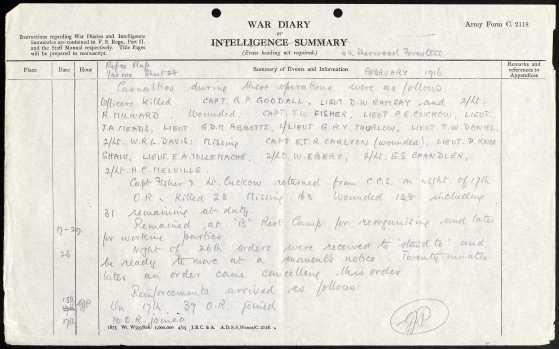 WAR DIARY
or
INTELLIGENCE SUMMARY
(Erase heading not required.)
Army Form C. 2118
Instructions regarding War Diaries and Intelligence
Summaries are contained in F. S. Regs., Part II.
and the Staff Manual respectively. Title Pages
will be prepared in manuscript.
Sherwood Foresters
Place
Date
Hour
Summary of Events and Information
FEBRUARY 1916
Remarks and
references to
Appendices
Casualties during these operations were as follows
Officers killed CAPT. R.P GOODALL, LIEUT D.W RAMSAY and 2/Lt.
R. MILWARD. Wounded. CAPT. T.W. FISHER, LIEUT P.E CUCKOW, LIEUT.
T.A. MEADS, LIEUT G.D.M. ABBOTTS, 2/LIEUT G.R.Y. THURLOW, LIEUT T.W. DANIEL,
2/Lt. W.R.L. DAVIS. Missing CAPT E.T.R. CARLYON (wounded), LIEUT. D. KAYE
SHAW, LIEUT. E.A. TALLEMACHE, 2/Lt. W. EBERY, 2/Lt. E.S. CHANDLER,
2/Lt. H.C. MELVILLE.
Capt Fisher & Lt. Cuckow returned from C.C.S. on night of 17th
O.R. Killed 28 Missing 163 Wounded 128 including
31 remaining at duty.
Remained at "B" Rest Camp for reorganising and later
for working parties
26
Night of 26th orders were received to "stand to" and
be ready to move at a moments notice. Twenty minutes
later an order came cancelling this order
Reinforcements arrived as follows
On 17th. 39 O.R. joined
17th